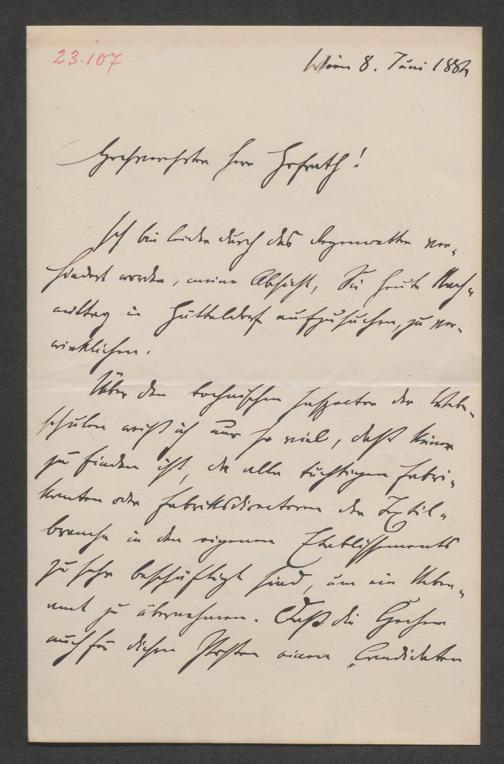 23.107
Wien 8. Juni 1884
Hochverehrter Herr Hofrath!
Ich bin leider durch das Regenwetter ver-
hindert worden, meine Absicht, Sie heute Nach-
mittag in Hütteldorf aufzusuchen, zu ver-
wirklichen.
Über den technischen Inspector der Web-
schulen weiß ich nur so viel, daß keiner
zu finden ist, da alle tüchtigen Fabri-
kanten oder Fabriksdirectoren der Textil-
branche in den eigenen Etablissements
zu sehr beschäftigt sind, um ein Neben-
amt zu übernehmen. Daß die Herren
auch für diesen Posten einen Candidaten